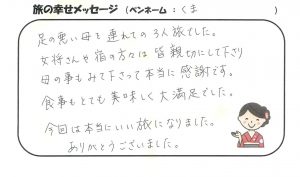 旅の幸せメッセージ (ペンネーム:くま)
足の悪い母を連れての3人旅でした。
女将さんや宿の方々は皆親切にして下さり
母の事もみて下さって本当に感謝です。
食事もとても美味しく大満足でした。
今回は本当にいい旅になりました。
ありがとうございました。